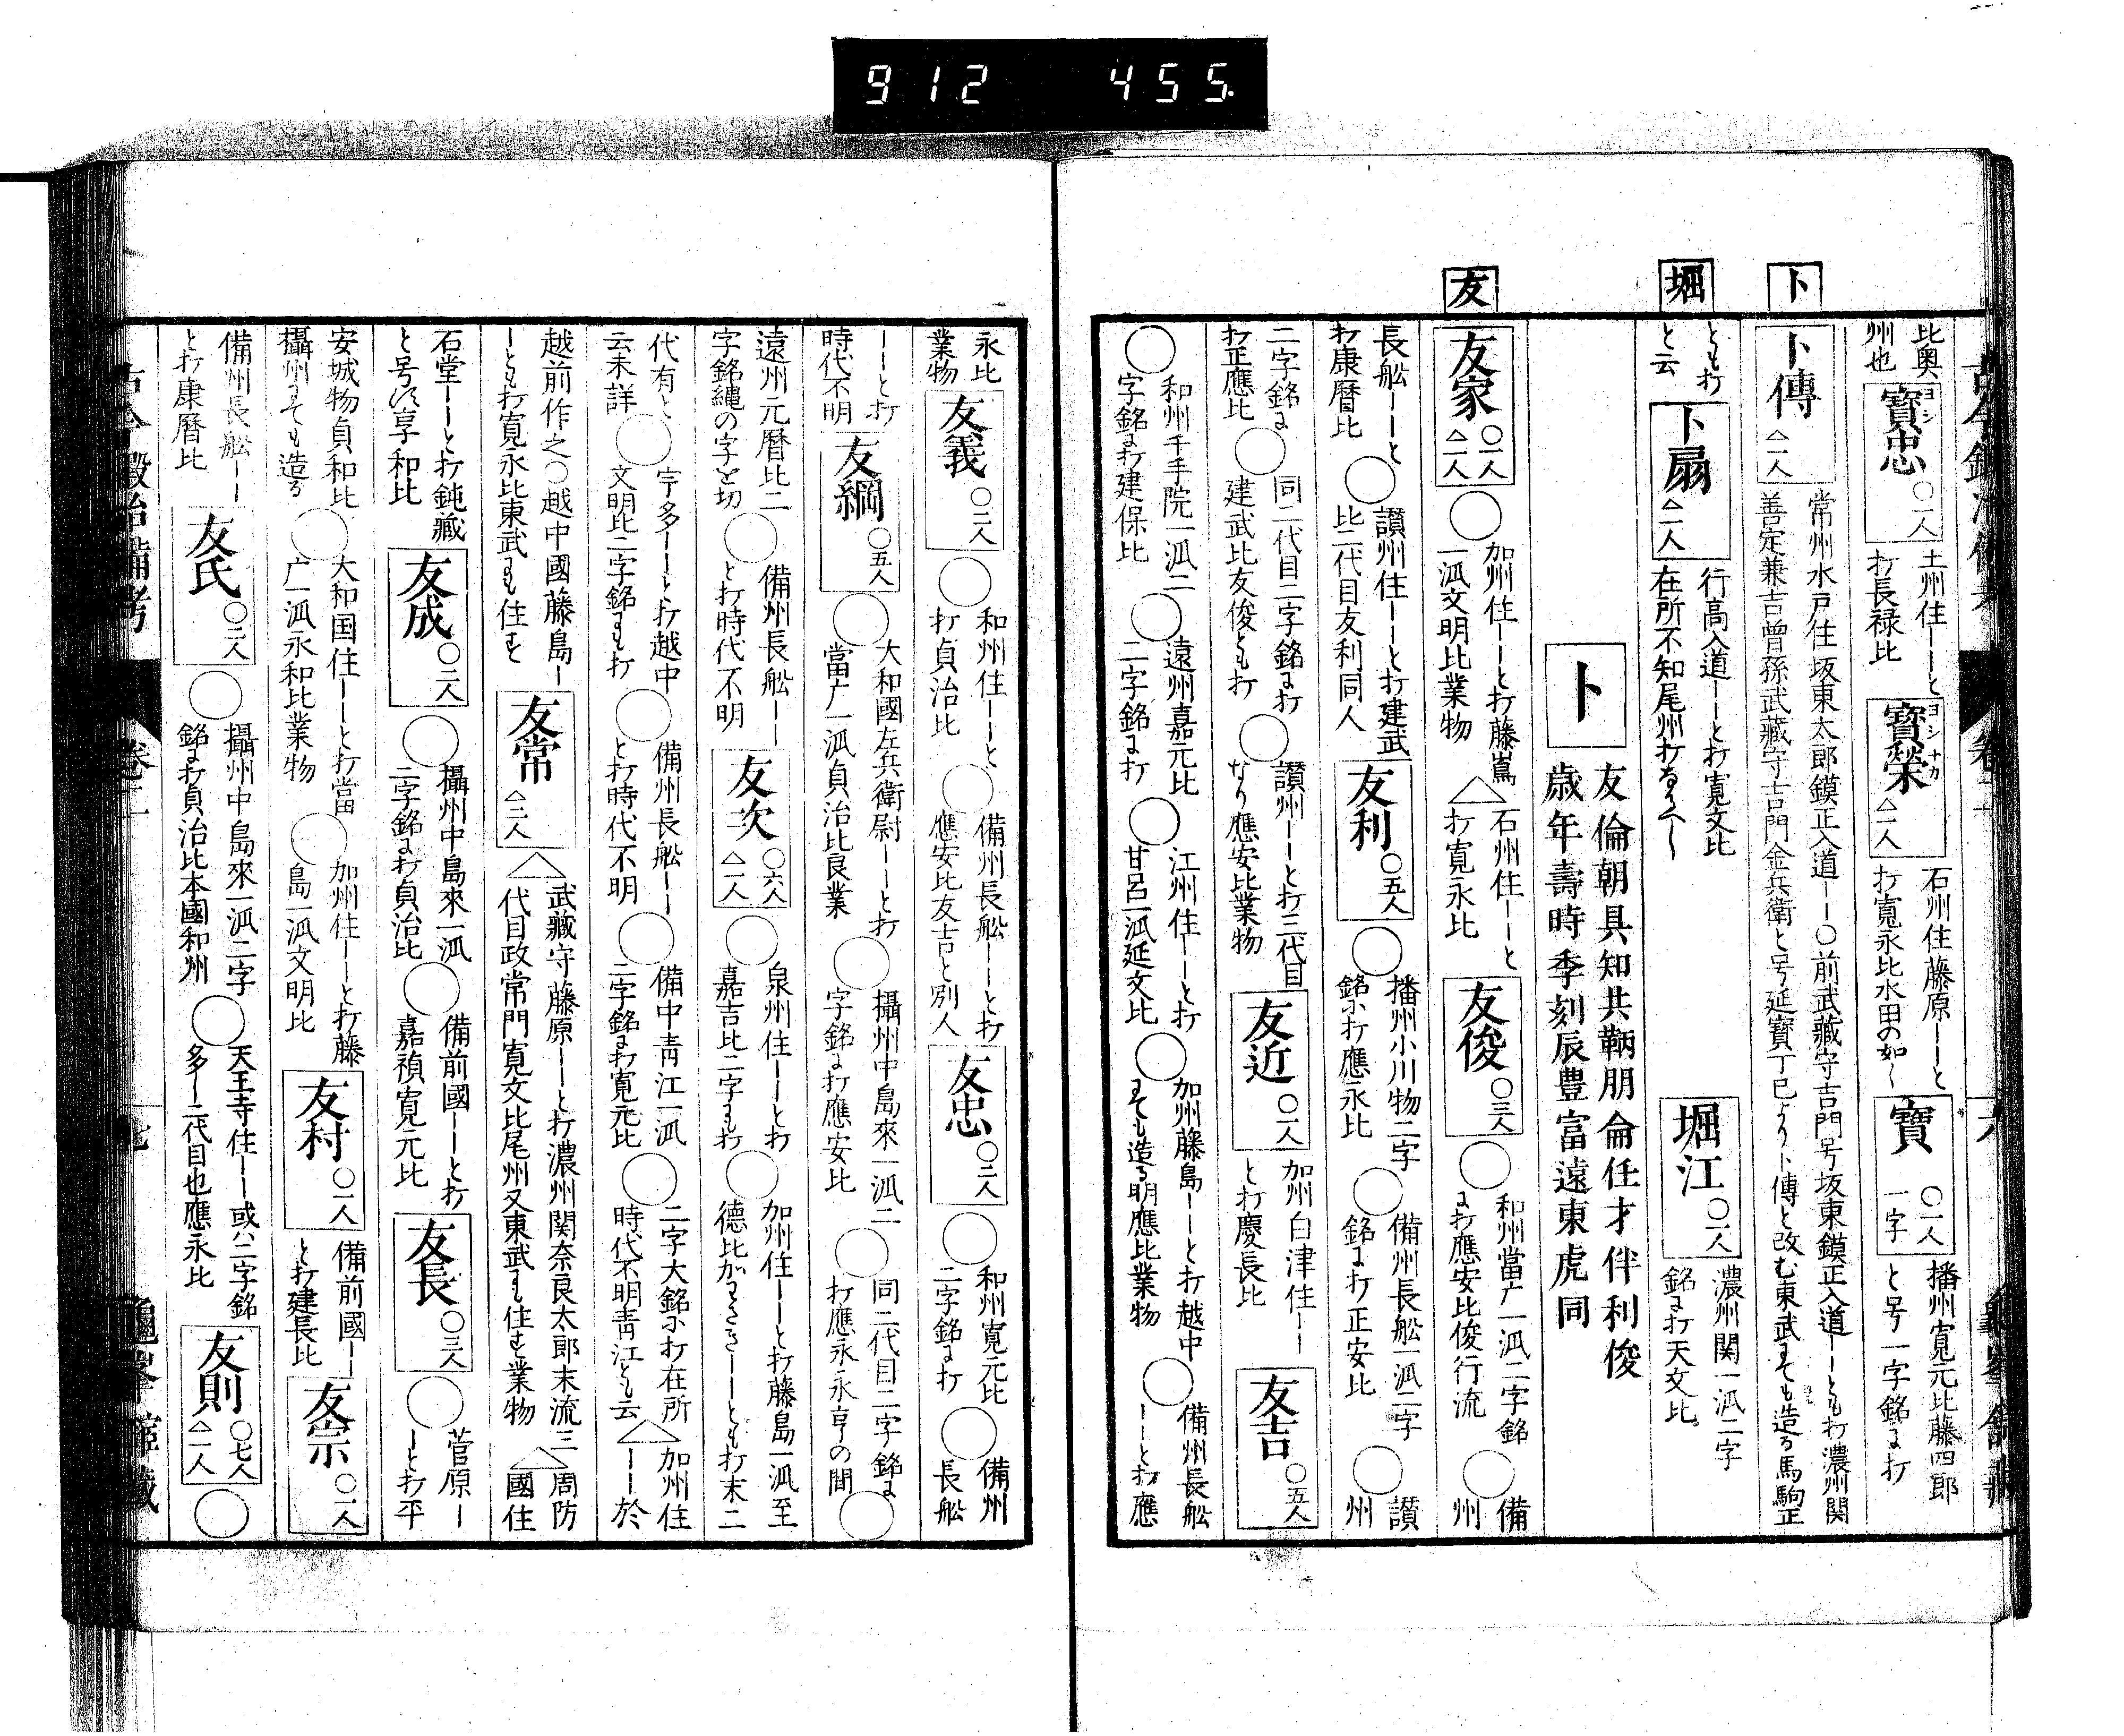 912 455.
卜
堀
友
比奥
州也
寶忠 ヨシ 〇一人
土州住ーーと
打長禄比
寶榮 ヨシ ナカ △一人
石州住藤原ーーと
打寛永比水田の如し
寶 〇一人 一字
播州寛元比藤四郎
と号一字銘に打
卜傳 △一人
常州水戸住坂東太郎鏌正入道ーー〇前武藏守吉門号坂東鏌正入道ーーとも打濃州関
善定兼吉曽孫武藏守吉門金兵衛と号延寶丁巳より卜傳と改む東武にても造る馬駒正
とも打
と云
卜扇 △一人
行高入道ーーと打寛文比
在所不知尾州打なるへし
堀江 〇一人
濃州関一派二字
銘に打天文比
卜
友倫朝具知共鞆朋侖任才伴利俊
歳年壽時季刻辰豊富遠東虎同
友家 〇一人 △一人
〇加州住ーーと打藤嶌
一派文明比業物
△石州住ーーと
打寛永比
友俊 〇三人
〇和州當广一派二字銘
に打應安比俊行流
〇備
州
長舩ーーと
打康暦比
〇讃州住ーーと打建武
比二代目友利同人
友利 〇五人
〇播州小川物二字
銘に打應永比
〇備州長舩一派二字
銘に打正安比
〇讃
州
二字銘に
打正應比
〇同二代目二字銘に打
建武比友俊とも打
〇讃州ーーと打三代目
なり應安比業物
友近 〇一人
加州白津住ーー
と打慶長比
友吉 〇五人
〇和州千手院一派二
字銘に打建保比
〇遠州嘉元比
二字銘に打
〇江州住ーーと打
甘呂一派延文比
〇加州藤島ーーと打越中
にても造る明應比業物
〇備州長舩
ーーと打應
古今鍛冶備考 卷三 六 龜峯館藏
永比
業物
友義 〇二人
〇和州住ーーと
打貞治比
〇備州長舩ーーと打
應安比友吉と別人
友忠 〇二人
〇和州寛元比
二字銘に打
〇備州
長舩
ーーと打
時代不明
友綱 〇五人
〇大和國左兵衛尉ーーと打
當广一派貞治比良業
〇攝州中島來一派二
字銘に打應安比
〇同二代目二字銘に
打應永永享の間
〇
遠州元暦比二
字銘縄の字を切
〇備州長舩ーー
と打時代不明
友次 〇六人 △一人
〇泉州住ーーと打
嘉吉比二字にも打
〇加州住ーーと打藤島一派至
德比かりさきーーとも打末二
代有と
云未詳
〇宇多ーーと打越中
文明比二字銘にも打
〇備州長舩ーー
と打時代不明
〇備中青江一派
二字銘に打寛元比
〇二字大銘に打在所
時代不明青江とも云
△加州住
ーー於
越前作之〇越中國藤島ー
ーとも打寛永比東武にも住す
友常 △二人
△武藏守藤原ーーと打濃州関奈良太郎末流三
代目政常門寛文比尾州又東武にも住す業物
△周防
國住
石堂ーーと打鈍藏
と号す享和比
友成 〇二人
〇攝州中島來一派
二字銘に打貞治比
〇備前國ーーと打
嘉禎寛元比
友長 〇三人
〇菅原ー
ーと打平
安城物貞和比
攝州にても造る
〇大和国住ーーと打當
广一派永和比業物
〇加州住ーーと打藤
島一派文明比
友村 〇一人
備前國ーー
と打建長比
友宗 〇一人
備州長舩ーー
と打康暦比
友氏 〇二人
〇攝州中島來一派二字
銘に打貞治比本國和州
〇天王寺住ーー或ハ二字銘
多し二代目也應永比
友則 〇七人 △一人
〇
古今鍛冶備考 卷三 七 龜峯館藏